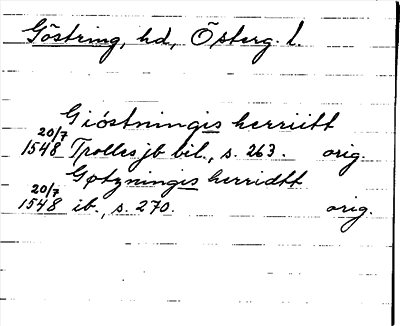 Göstring, hd, Österg. l.
Gióstningis herriitt
20/7
1548 Trolles jb bil., s. 263. orig.
Gøtzningis herridtt
20/7
1548 ib., s. 270. orig.